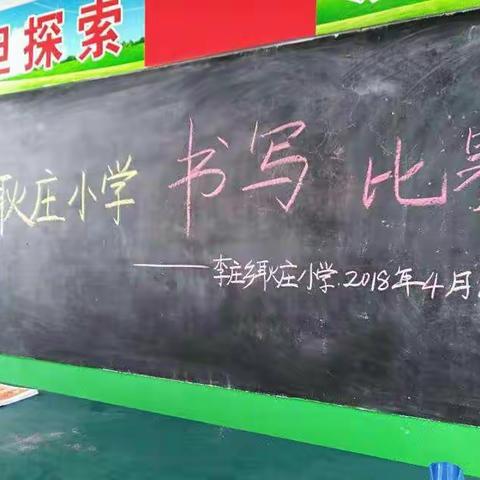 探索
耿庄小学 书写比赛
——李庄乡耿庄小学.2018年4月